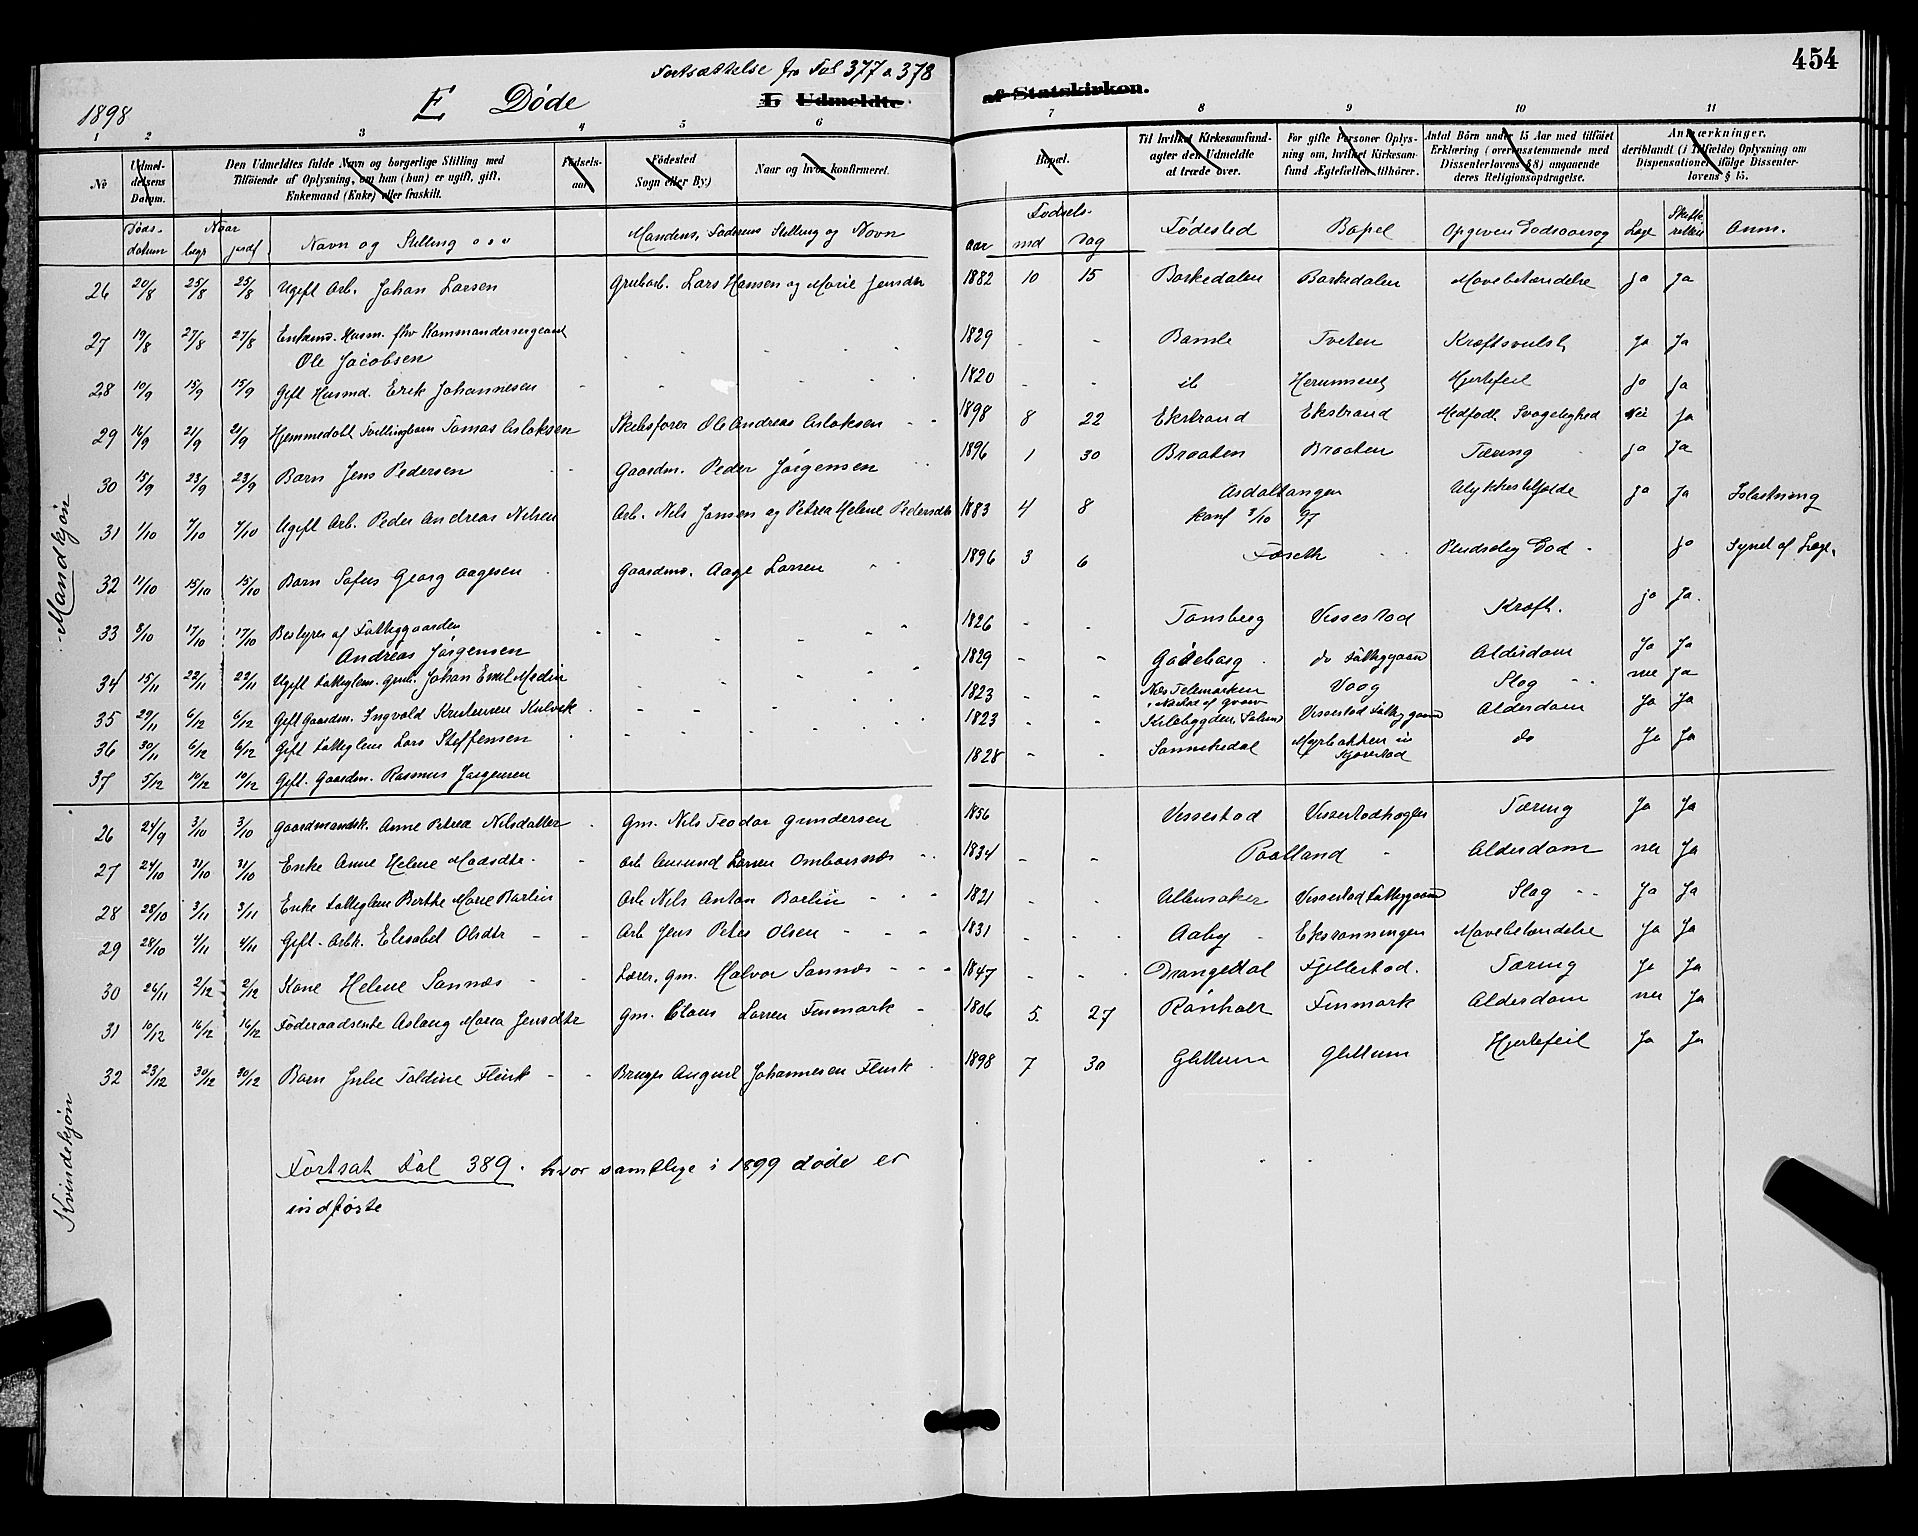 Fortsættelse fra Fol 377 a 378
454
1898
E Døde
L. Udmeldte af Statskirken.
1 2 3 4 5 6 7 8 9 10 11
No
Udmeldelsens Datum.
Den Udmeldtes fulde Navn og borgerlige Stilling med Tilføiende af Oplysning, om han (hun) er ugift, gift, Enkemand (Enke) eller fraskilt.
Fødselsaar.
Fødested Sogn eller By)
Naar og hvor konfirmeret.
Bopæl.
Til hvilket Kirkesamfund agter den Udmeldte at træde over.
For gifte Personer Oplysning om, hvilket Kirkesamfund Ægtefællen tilhører.
Antal Børn under 15 Aar med tilføiet Erklæring (overensstemmende med Dissenterlovens § 8) angaaende deres Religionsopdragelse.
Anmærkninger, deriblandt (i Tilfælde) Oplysning om Dispensationer ifølge Dissenterlovens § 15.
Dødsdatum Naar begr jordf Navn og Stilling Mandens, Faderens Stilling og Navn Fødsels- aar md Dag Fødested Bopel Opgiven Dødsaarsag Læge Skifteretten Anm.
Mandkjøn
26 20/8 25/8 25/8 Ugift Arb. Johan Larsen Grubarb. Lars Hansen og Marie Jensdtr 1882 10 15 Barkedalen Barkedalen Mavebetændelse ja ja
27 19/8 27/8 27/8 Enkemd. Husm. fhv Kommandersergeant Ole Jacobsen 1829 - - Bamle Tveten Kræftsvulst Ja Ja
28 10/9 15/9 15/9 Gift Husmd. Erik Johannesen 1820 - - ib Herum Hjertefeil ja Ja
29 16/9 21/9 21/9 Hjemmedøbt Tvillingbarn Tomas Aslaksen Skibsfører Ole Andreas Aslaksen 1898 8 22 Ekstrand Ekstrand Medfødt Svagelighed Nei Ja
30 15/9 23/9 23/9 Barn Jens Pedersen Gaardm. Peder Jørgensen 1896 1 30 Braaten Braaten Tæring ja Ja
31 1/10 7/10 7/10 Ugift Arb. Peder Andreas Nilsen Arb. Nils Jansen og Petrea Helene Pedersdtr 1883 4 8 Asdaltangen konf 3/10 97 Ulykkestilfælde ja Ja
32 11/10 15/10 15/10 Barn Sofus Georg Aagesen Gaardmd. Aage Larsen 1896 3 6 Foseth Pludselig Død ja Synet af Læge.
33 8/10 17/10 17/10 Bestyrer af Fattiggaarden Andreas Jørgensen 1826 - - Tønsberg Vissestad Kræft. ja Ja.
34 15/11 22/11 22/11 Ugift Fatteglem. Johan Emil Medin 1829 - - Gøteborg do Fattiggaard Alderdom Ja Ja
35 29/11 6/12 6/12 Gift Gaardm. Ingvald Kristensen 1823 - - Nes Telemarken Voog Slag nei Ja
36 30/11 6/12 6/12 Gift Fatteglem Lars Steffensen 1823 - - Kilebygden Solum Vissestad Fattiggaard Alderdom Ja Ja
37 5/12 10/12 10/12 Gift. Gaardm. Rasmus Jørgensen 1828 - - Sannikedal Myrbakken do Ja Ja
Kvindekjøn
26 24/9 3/10 3/10 Gaardmandsk. Anne Petrea Nilsdatter Gm. Nils Teodor Gundersen 1856 Vissestad Vissestadhogen Tæring Ja Ja
27 24/10 31/10 31/10 Enke Anne Helene Madsdtr. Arb Amund Larsen Ombornæs 1834 - - Paalland Alderdom nei Ja
28 28/10 3/11 3/11 Enke Fatteglem Berthe Marie Barlin Arb Nils Anton Barlin 1821 - - Ullensaker Vissestad Fattiggaard Slag Ja Ja
29 28/10 4/11 4/11 Gift. Arbk. Elisabet Olsdtr Arb Jens Peter Olsen 1831 - - Aaby Eksrønningen Mavebetændelse Ja Ja
30 26/11 2/12 2/12 Kone Helene Sannæs Lærer, gm. Halvor Sannæs 1847 - - Drangedal Fjellestad. Tæring Ja Ja
31 10/12 16/12 16/12 Føderaadsenke Aslaug Maria Jensdtr Gm. Claus Larsen Finmark 1806 5. 27 Rønholt Finmark Alderdom nei Ja
32 23/12 30/12 30/12 Barn Julie Taldine Flink Bruger August Johannesen Flink 1898 7 30 Glittum Glittum Hjertefeil Ja Ja
Fortsat Fol 389. hvor samtlige i 1899 døde er
indførte